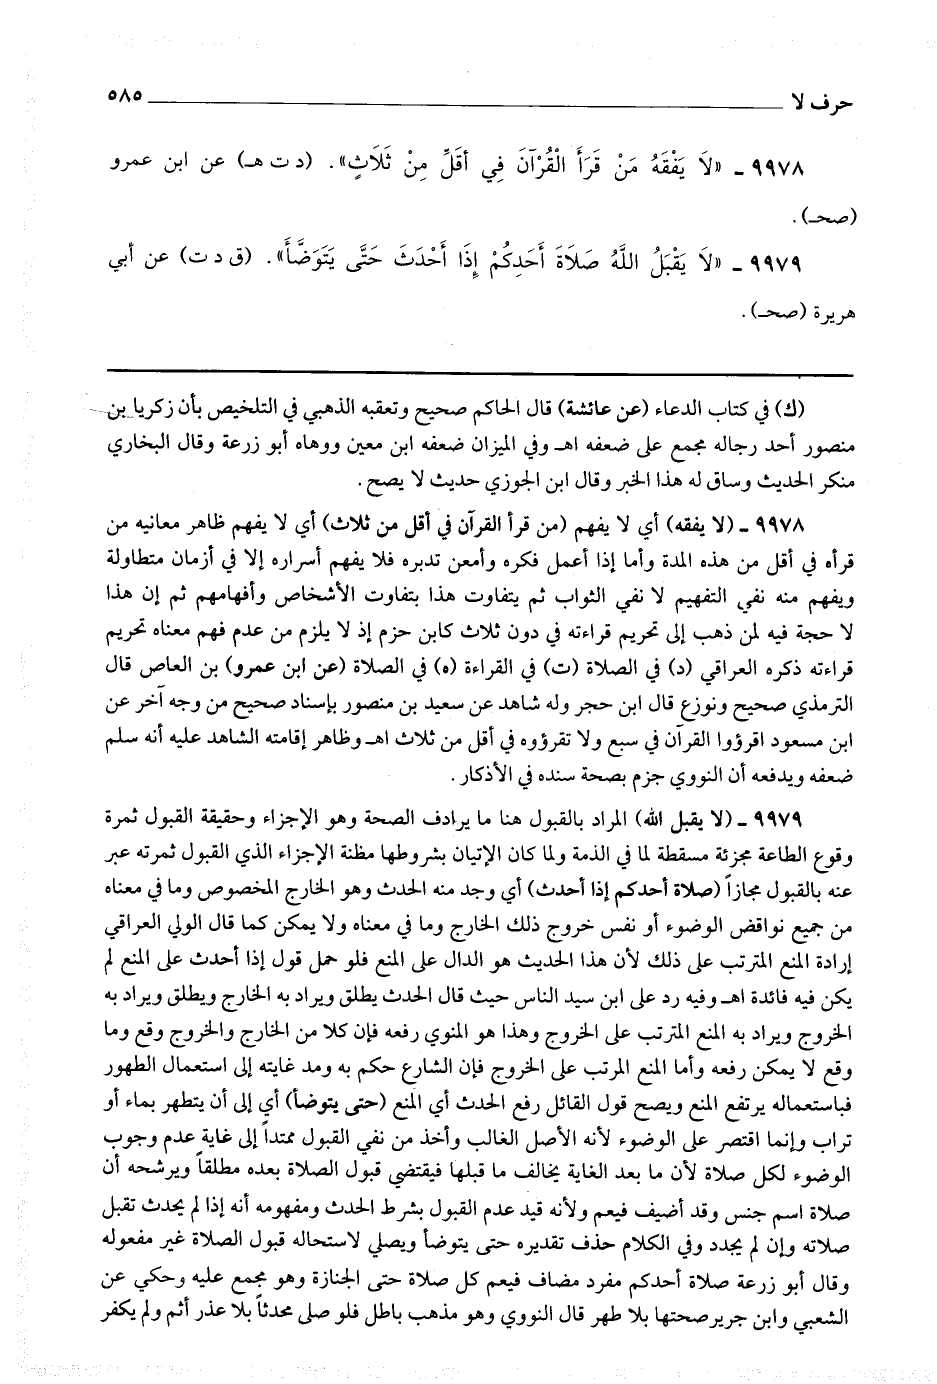 حرف لا ٥٨٥
٩٩٧٨ ـ «لَا يَفْقَهُ مَنْ قَرَأَ الْقُرْآنَ فِي أَقَلَّ مِنْ ثَلَاثٍ». (د ت هـ) عن ابن عمرو
(صحـ).
٩٩٧٩ ـ «لَا يَقْبَلُ اللَّهُ صَلَاةَ أَحَدِكُمْ إِذَا أَحْدَثَ حَتَّى يَتَوَضَّأَ». (ق د ت) عن أبي
هريرة (صحـ).
(ك) في كتاب الدعاء (عن عائشة) قال الحاكم صحيح وتعقبه الذهبي في التلخيص بأن زكريا بن
منصور أحد رجاله مجمع على ضعفه اهـ وفي الميزان ضعفه ابن معين ووهاه أبو زرعة وقال البخاري
منكر الحديث وساق له هذا الخبر وقال ابن الجوزي حديث لا يصح.
٩٩٧٨ ـ (لا يفقه) أي لا يفهم (من قرأ القرآن في أقل من ثلاث) أي لا يفهم ظاهر معانيه من
قرأه في أقل من هذه المدة وأما إذا أعمل فكره وأمعن تدبره فلا يفهم أسراره إلا في أزمان متطاولة
ويفهم منه نفي التفهيم لا نفي الثواب ثم يتفاوت هذا بتفاوت الأشخاص وأفهامهم ثم إن هذا
لا حجة فيه لمن ذهب إلى تحريم قراءته في دون ثلاث كابن حزم إذ لا يلزم من عدم فهم معناه تحريم
قراءته ذكره العراقي (د) في الصلاة (ت) في القراءة (ه) في الصلاة (عن ابن عمرو) بن العاص قال
الترمذي صحيح ونوزع قال ابن حجر وله شاهد عن سعيد بن منصور بإسناد صحيح من وجه آخر عن
ابن مسعود اقرؤوا القرآن في سبع ولا تقرؤوه في أقل من ثلاث اهـ وظاهر إقامته الشاهد عليه أنه سلم
ضعفه ويدفعه أن النووي جزم بصحة سنده في الأذكار.
٩٩٧٩ ـ (لا يقبل الله) المراد بالقبول هنا ما يرادف الصحة وهو الإجزاء وحقيقة القبول ثمرة
وقوع الطاعة مجزئة مسقطة لما في الذمة ولما كان الإتيان بشروطها مظنة الإجزاء الذي القبول ثمرته عبر
عنه بالقبول مجازاً (صلاة أحدكم إذا أحدث) أي وجد منه الحدث وهو الخارج المخصوص وما في معناه
من جميع نواقض الوضوء أو نفس خروج ذلك الخارج وما في معناه ولا يمكن كما قال الولي العراقي
إرادة المنع المترتب على ذلك لأن هذا الحديث هو الدال على المنع فلو حمل قول إذا أحدث على المنع لم
يكن فيه فائدة اهـ وفيه رد على ابن سيد الناس حيث قال الحدث يطلق ويراد به الخارج ويطلق ويراد به
الخروج ويراد به المنع المترتب على الخروج وهذا هو المنوي رفعه فإن كلا من الخارج والخروج وقع وما
وقع لا يمكن رفعه وأما المنع المرتب على الخروج فإن الشارع حكم به ومد غايته إلى استعمال الطهور
فباستعماله يرتفع المنع ويصح قول القائل رفع الحدث أي المنع (حتى يتوضأ) أي إلى أن يتطهر بماء أو
تراب وإنما اقتصر على الوضوء لأنه الأصل الغالب وأخذ من نفي القبول ممتداً إلى غاية عدم وجوب
الوضوء لكل صلاة لأن ما بعد الغاية يخالف ما قبلها فيقتضي قبول الصلاة بعده مطلقاً ويرشحه أن
صلاة اسم جنس وقد أضيف فيعم ولأنه قيد عدم القبول بشرط الحدث ومفهومه أنه إذا لم يحدث تقبل
صلاته وإن لم يجدد وفي الكلام حذف تقديره حتى يتوضأ ويصلي لاستحاله قبول الصلاة غير مفعوله
وقال أبو زرعة صلاة أحدكم مفرد مضاف فيعم كل صلاة حتى الجنازة وهو مجمع عليه وحكي عن
الشعبي وابن جرير صحتها بلا طهر قال النووي وهو مذهب باطل فلو صلى محدثاً بلا عذر أثم ولم يكفر